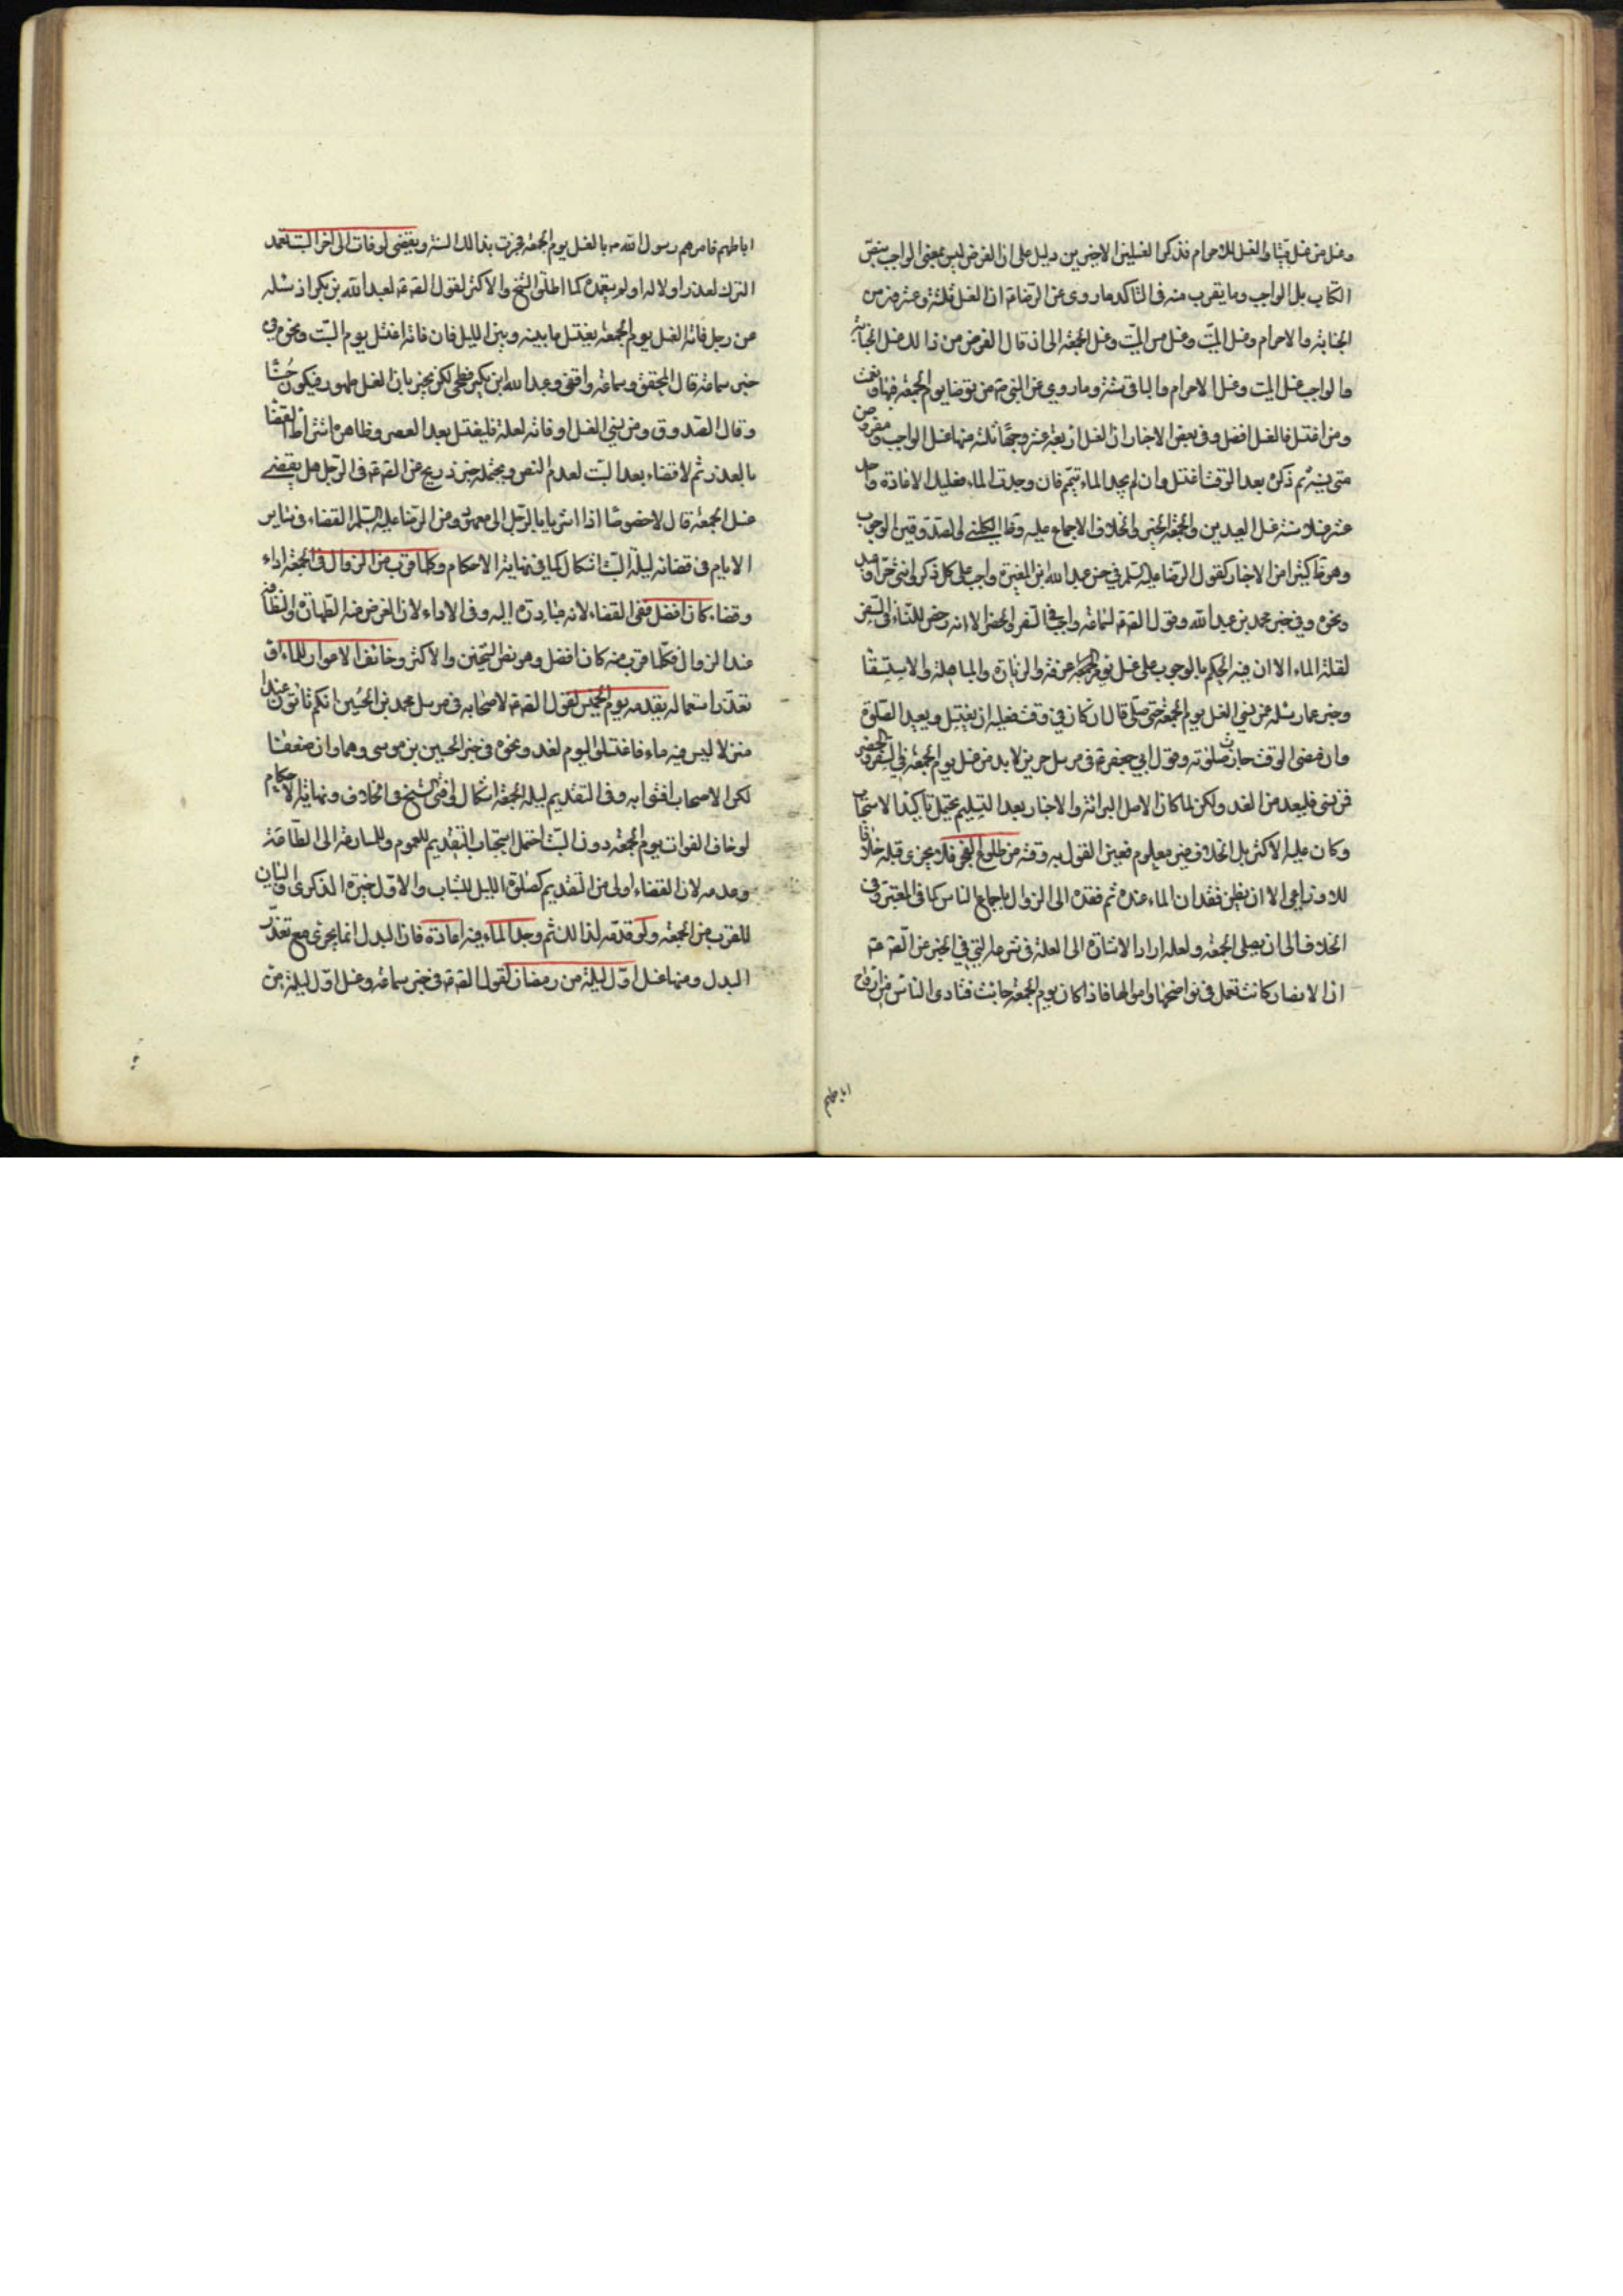 وغسل من غسل ميتا والغسل للاحرام فذكر الغسلين الاخيرين دليل على ان الفرض ليس بمعنى الواجب بنص
الكتاب بل الواجب وما يقرب منه في التاكد ما روي عن الرضا ع ان الغسل ثلثة وعشرون من
الجنابة والاحرام وغسل الميت وغسل مس الميت وغسل الجمعة الى ان قال الفرض من ذالك غسل الجنابة
والواجب غسل الميت وغسل الاحرام والباقي سنة وما روي عن النبي ص من توضا يوم الجمعة فبها ونعمت
ومن اغتسل فالغسل افضل وفي بعض الاخبار ان الغسل اربعة عشر وجها ثلثة منها غسل الواجب مفروض
متى نسيه ثم ذكره بعد الوقت اغتسل وان لم يجد الماء تيمم فان وجدت الماء فعليك الاعادة واحد
عشر غسلا سنة غسل العيدين والجمعة الخبر وفي الخلاف الاجماع عليه وظاهر الكليني والصدوقين الوجوب
وهو ظ كثير من الاخبار كقول الرضا عليه السلم في خبر عبد الله بن المغيرة واجب على كل ذكر وانثى حر او عبد
ونحوه وفي خبر محمد بن عبد الله وقول الصادق ع لسماعة واجب في السفر والحضر الا انه رخص للنساء في السفر
لقلة الماء الا ان فيه الحكم بالوجوب على غسل يوم عرفة والزيارة والمباهلة والاستسقا
وخبر عمار سئله عمن نسي الغسل يوم الجمعة حتى صلى قال ان كان في وقت فعليه ان يغتسل ويعيد الصلوة
وان مضى الوقت جازت صلوته وقول ابي جعفر ع في مرسل حريز لا بد من غسل يوم الجمعة في السفر والحضر
فمن نسي فليعد من الغد ولكن لما كان الاصل البرائة والاخبار بعد التسليم يحتمل تاكيد الاستحباب
وكان عليه الاكثر بل الخلاف غير معلوم تعين القول به وقته من طلوع الفجر فلا يجزى قبله خلافا
للاوزاعي الا ان يظن فقدان الماء عنده ثم فقده الى الزوال باجماع الناس كما في المعتبر وفي
الخلاف الى ان يصلى الجمعة ولعله اراد الاشارة الى العلة في شرعه التي في الخبر عن الصادق ع
ان الانصار كانت تعمل في نواضحها واموالها فاذا كان يوم الجمعة جائت فتاذى الناس من ارواح
اباطهم
اباطهم فامرهم رسول الله ص بالغسل يوم الجمعة فجرت بذالك السنة ويقضى لو فات الى اخر السبت تعمد
الترك لعذر او لا له او لم يتعمده كما اطلق الشيخ والاكثر لقول الصادق ع لعبد الله بن بكير اذ سئله
عن رجل فاته الغسل يوم الجمعة يغتسل ما بينه وبين الليل فان فاته اغتسل يوم السبت ونحوه في
خبر سماعة قال المحقق وسماعة واقفي وعبد الله ابن بكير فطحي لكن ينجبر بان الغسل طهور فيكون حسنا
وقال الصدوق ومن نسي الغسل او فاته لعلة فليغتسل بعد العصر وظاهره اشتراط القضا
بالعذر ثم لا قضاء بعد السبت لعدم النص ويحتمله خبر ذريح عن الصادق ع في الرجل هل يقضي
غسل الجمعة قال لا خصوصا اذا اشير بالرجل الى معهود وعن الرضا عليه السلم القضاء في ساير
الايام في قضائه ليلة السبت اشكال كما في نهاية الاحكام وكلما قرب من الزوال في الجمعة اداء
وقضاء كان افضل ففي القضاء لانه مبادرة اليه وفي الاداء لان الغرض منه الطهارة والنظافة
عند الزوال فكلما قرب منه كان افضل وهو نص الشيخين والاكثر وخائف الاعواز للماء او
تعذر استعماله يقدمه يوم الخميس لقول الصادق ع لاصحابه في مرسل محمد بن الحسين انكم تاتون غدا
منزلا ليس فيه ماء فاغتسلوا اليوم لغد ونحوه في خبر الحسين بن موسى وهما وان ضعفتا
لكن الاصحاب افتوا به وفي التقديم ليلة الجمعة اشكال وافتى الشيخ في الخلاف ونهاية الاحكام
لو خاف الفوات يوم الجمعة دون السبت احتمل استحباب التقديم للعموم والمسارعة الى الطاعة
وعدمه لان القضاء اولى من التقديم كصلوة الليل للشاب والاول خيرة الذكرى والبيان
للقرب من الجمعة ولو قدمه لذالك ثم وجد الماء فيه اعاده فان البدل انما يجزى مع تعذر
المبدل ومنها غسل اول ليلة من رمضان لقول الصادق ع في خبر سماعة وغسل اول ليلة من